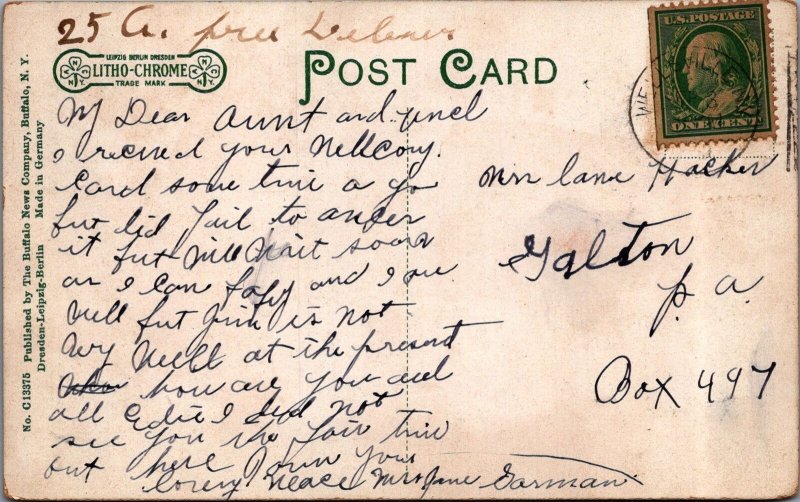 25 G. free
LEIPZIG BERLIN DRESDEN
LITHO-CHROME
TRADE MARK
POST CARD
U.S. POSTAGE
ONE CENT
No. C13375 Published by The Buffalo News Company, Buffalo, N. Y.
Dresden-Leipzig-Berlin Made in Germany
My Dear Aunt and uncl
i recived your Wellcory
Card some time a go
but did fail to anser
it but will Writ soon
as i can and i am
Well but is not
wry Well at the present
how are you and
all Edie i did not
see you the fair time
out here from your
loveing Neace Mrs Jane Garman
Mrs lane Hacker
Galeton
p. a.
Box 497